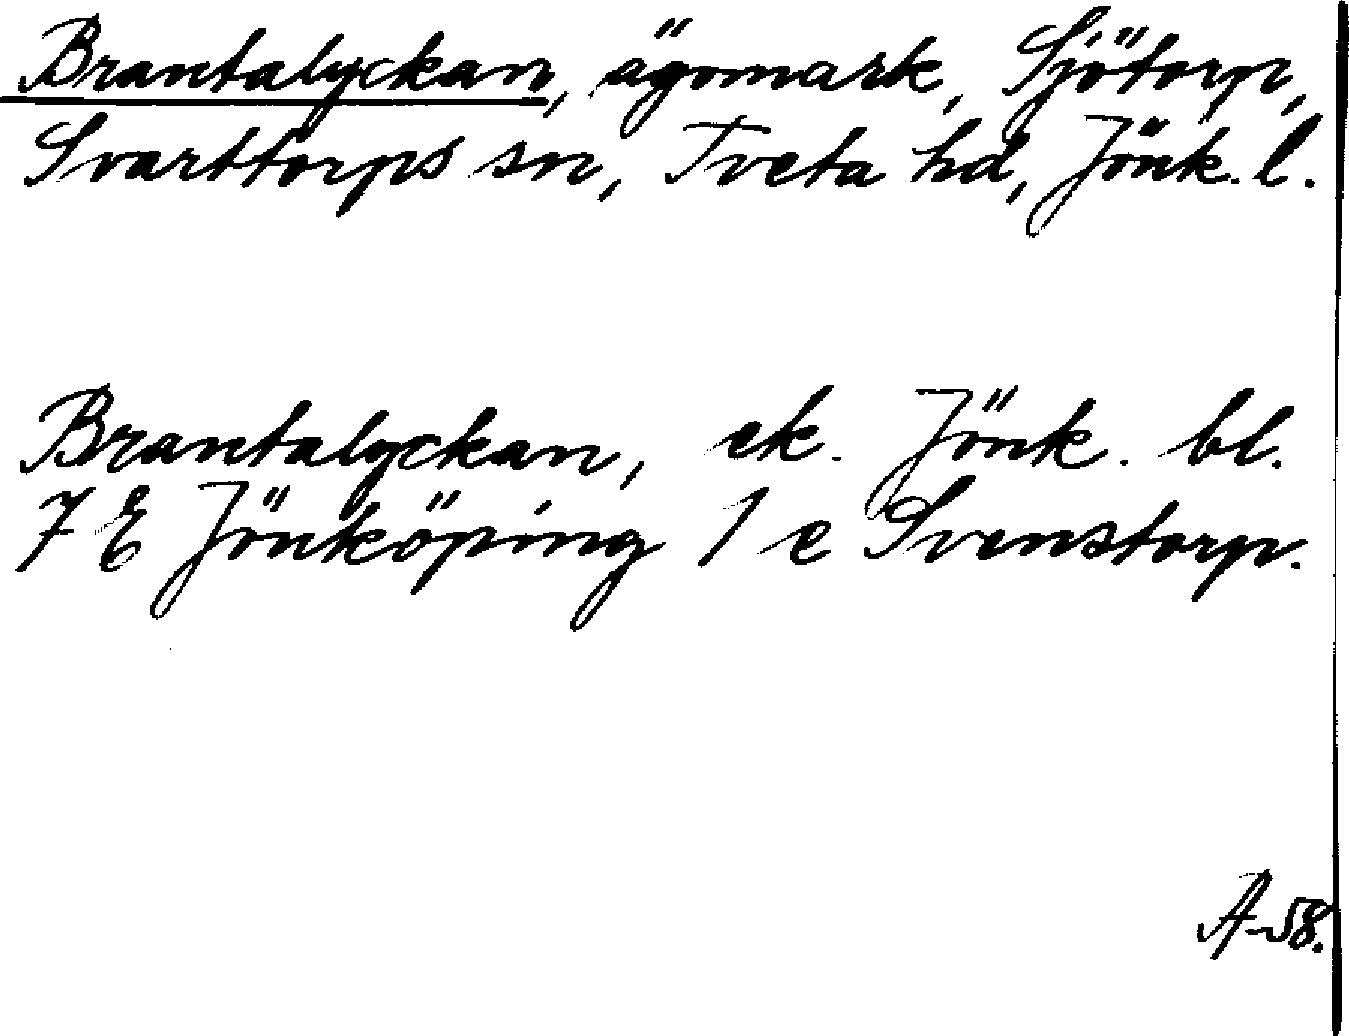 Brantalyckan, ägomark, Sjötorp,
Svarttorps sn, Tveta hd, Jönk. l.
Brantalyckan, ek. Jönk. bl.
7 E Jönköping 1 e Svenstorp.
A-58.